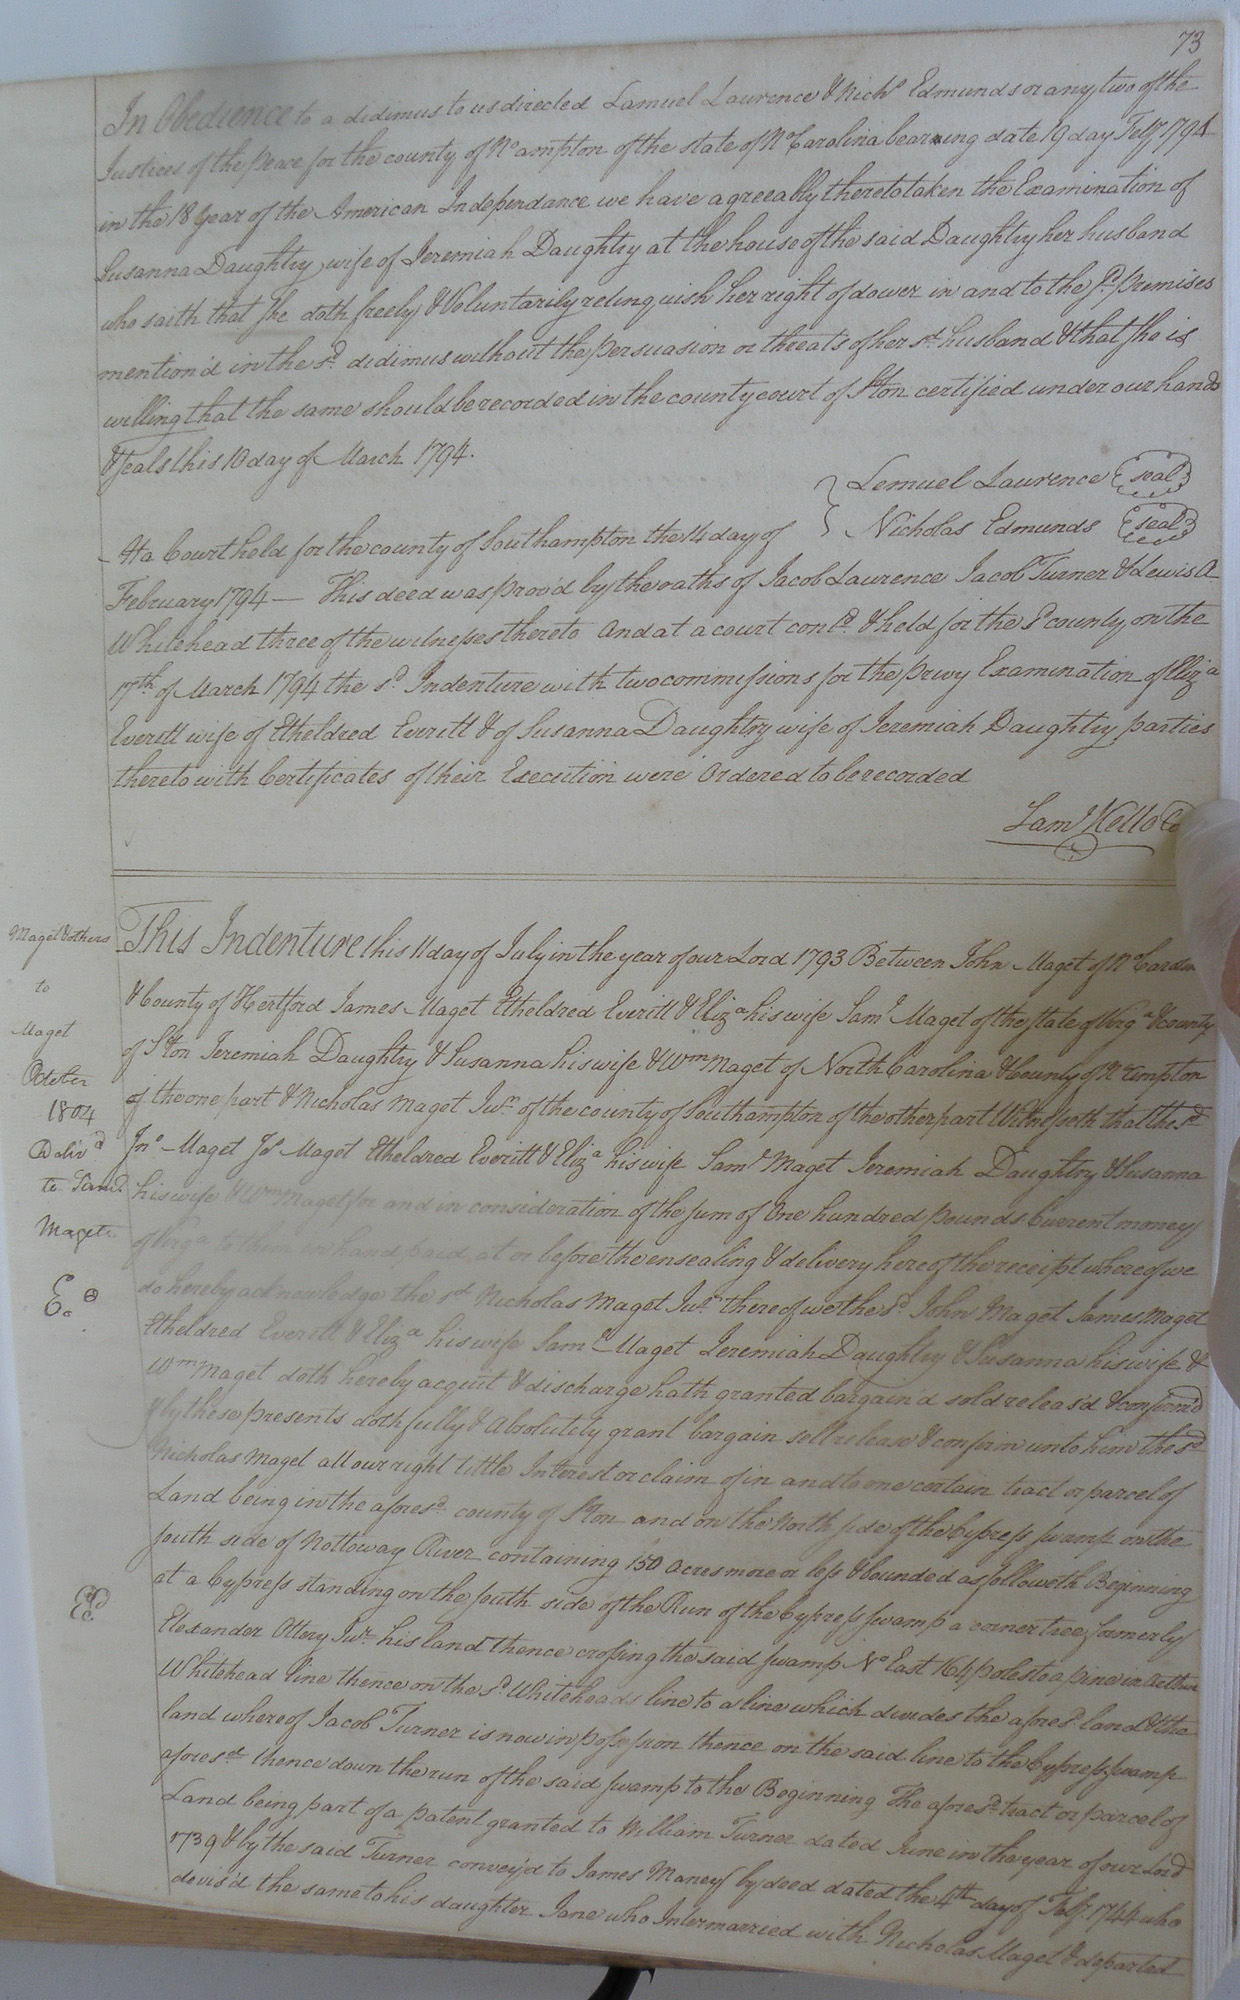 73
In Obedience to a didimus to us directed Lamuel Laurence & Nichs Edmunds or any two of the
Justices of the peace for the county of No ampton of the state of No Carolina bearing date 19 day Feby 1794
in the 18 year of the American Independance we have agreeably thereto taken the Examination of
Susanna Daughtry wife of Jeremiah Daughtry at the house of the said Daughtry her husband
who saith that she doth freely & Voluntarily relinquish her right of dower in and to the sd. premises
mention'd in the sd. didimus without the persuasion or threats of her sd. husband & that she is
willing that the same should be recorded in the county court of Sthton certified under our hands
& seals this 10 day of March 1794.
Lemuel Laurence (seal)
Nicholas Edmunds (seal)
At a Court held for the county of Southampton the 14 day of
February 1794 — This deed was prov'd by the oaths of Jacob Laurence Jacob Turner & Lewis A
Whitehead three of the witnesses thereto and at a court contd. & held for the sd county on the
17th of March 1794 the sd. Indenture with two commissions for the privy Examination of Eliza
Everitt wife of Etheldred Everitt & of Susanna Daughtry wife of Jeremiah Daughtry parties
thereto with Certificates of their Execution were Ordered to be recorded
Saml Kello Co
Maget & others
to
Maget
October
1804
Delivd
to Saml
Magett
This Indenture this 11 day of July in the year of our Lord 1793 Between John Maget of No Carolin
& County of Hertford James Maget Etheldred Everitt & Eliza his wife Saml Maget of the state of Virga & county
of Sthton Jeremiah Daughtry & Susanna his wife & Wm Maget of North Carolina & County of No ampton
of the one part & Nicholas Maget Junr of the county of Southampton of the other part Witnesseth that the sd
Jno Maget Js Maget Etheldred Everitt & Eliza his wife Saml Maget Jeremiah Daughtry & Susanna
his wife & Wm Maget for and in consideration of the sum of One hundred pounds Current money
of Virga to them in hand paid at or before the ensealing & delivery hereof the receipt whereof we
do hereby acknowledge the sd Nicholas Maget Junr thereof we the sd. John Maget James Maget
Etheldred Everitt & Eliza his wife Saml Maget Jeremiah Daughtry & Susanna his wife &
Wm Maget doth hereby acquit & discharge hath granted bargain'd sold releas'd & confirm'd
& by these presents doth fully & Absolutely grant bargain sell release & confirm unto him the sd
Nicholas Maget all our right tittle Interest or claim of in and to one certain tract or parcel of
Land being in the aforesd. county of Sthton and on the North side of the Cypress swamp on the
south side of Nottoway River containing 150 acres more or less & bounded as followeth Beginning
at a Cypress standing on the south side of the Run of the Cypress swamp a corner tree formerly
Elexander Ottery Junr. his land thence crossing the said swamp No East 164 poles to a pine in Arthur
Whitehead line thence on the sd. Whiteheads line to a line which divides the aforesd. land & the
land whereof Jacob Turner is now in possession thence on the said line to the Cypress swamp
aforesd. thence down the run of the said swamp to the Beginning The aforesd. tract or parcel of
Land being part of a patent granted to William Turner dated June in the year of our Lord
1739 & by the said Turner convey'd to James Maney by deed dated the 4th day of Feby. 1744 who
devis'd the same to his daughter Jane who Intermarried with Nicholas Maget & departed